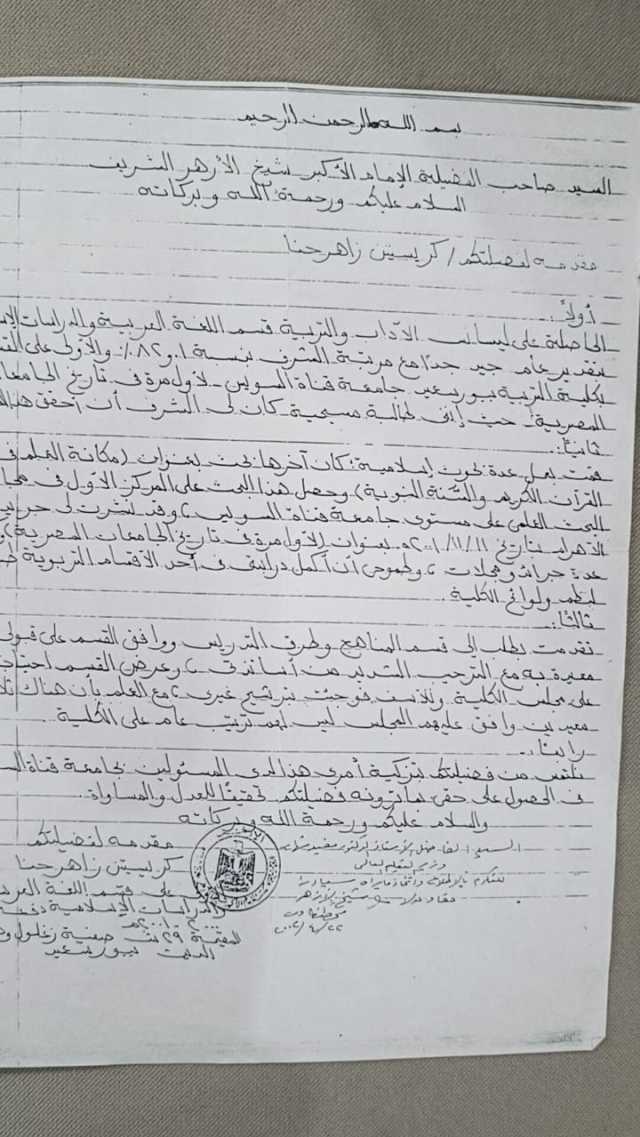 بسم الله الرحمن الرحيم
السيد صاحب الفضيلة الإمام الأكبر شيخ الأزهر الشريف
السلام عليكم ورحمة الله وبركاته
مقدمه لفضيلتكم / كريستين زاهر حنا
أولاً:
الحاصلة على ليسانس الآداب والتربية قسم اللغة العربية والدراسات
بتقدير عام جيد جداً مع مرتبة الشرف بنسبة ٨٢٫٠١٪ والأولى على
بكلية التربية ببورسعيد جامعة قناة السويس - لأول مرة فى تاريخ الجامعات
المصرية - حيث إننى طالبة مسيحية كان لى الشرف أن أحقق هذا
ثانياً:
قمت بعمل عدة بحوث إسلامية: كان آخرها بحث بعنوان (مكانة العلم فى
القرآن الكريم والسنة النبوية) وحصل هذا البحث على المركز الأول فى
البحث العلمى على مستوى جامعة قناة السويس، وقد نشرت لى
الأهرام بتاريخ ٢٠٠١/١١/١١م بعنوان (لأول مرة فى تاريخ الجامعات المصرية)
عدة جرائد ومجلات، وطموحى أن أكمل دراستى فى أحد الأقسام التربوية
لنظم ولوائح الكلية.
ثالثاً:
تقدمت بطلب إلى قسم المناهج وطرق التدريس ووافق القسم على قبولى
معيدة به مع الترحيب الشديد من أساتذتى، وعرض القسم
على مجلس الكلية. وللأسف فوجئت بترشيح غيرى، مع العلم بأن هناك
معيدين وافق عليهم المجلس ليس لهم ترتيب عام على الكلية.
رابعاً:
نلتمس من فضيلتكم تزكية أمرى هذا لدى المسئولين بجامعة قناة
فى الحصول على حقى بما ترونه فضيلتكم تحقيقاً للعدل والمساواة.
والسلام عليكم ورحمة الله وبركاته
مقدمه لفضيلتكم
كريستين زاهر حنا
على قسم اللغة
والدراسات الإسلامية دفعة
المقيمة ٢٩ ش صفية زغلول
بورسعيد
السيد الفاضل الأستاذ الدكتور مفيد شهاب
وزير التعليم العالى
شيخ الأزهر